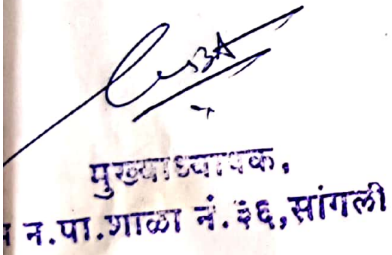 मुख्याध्यापक,
न.पा.शाळा नं.३६,सांगली